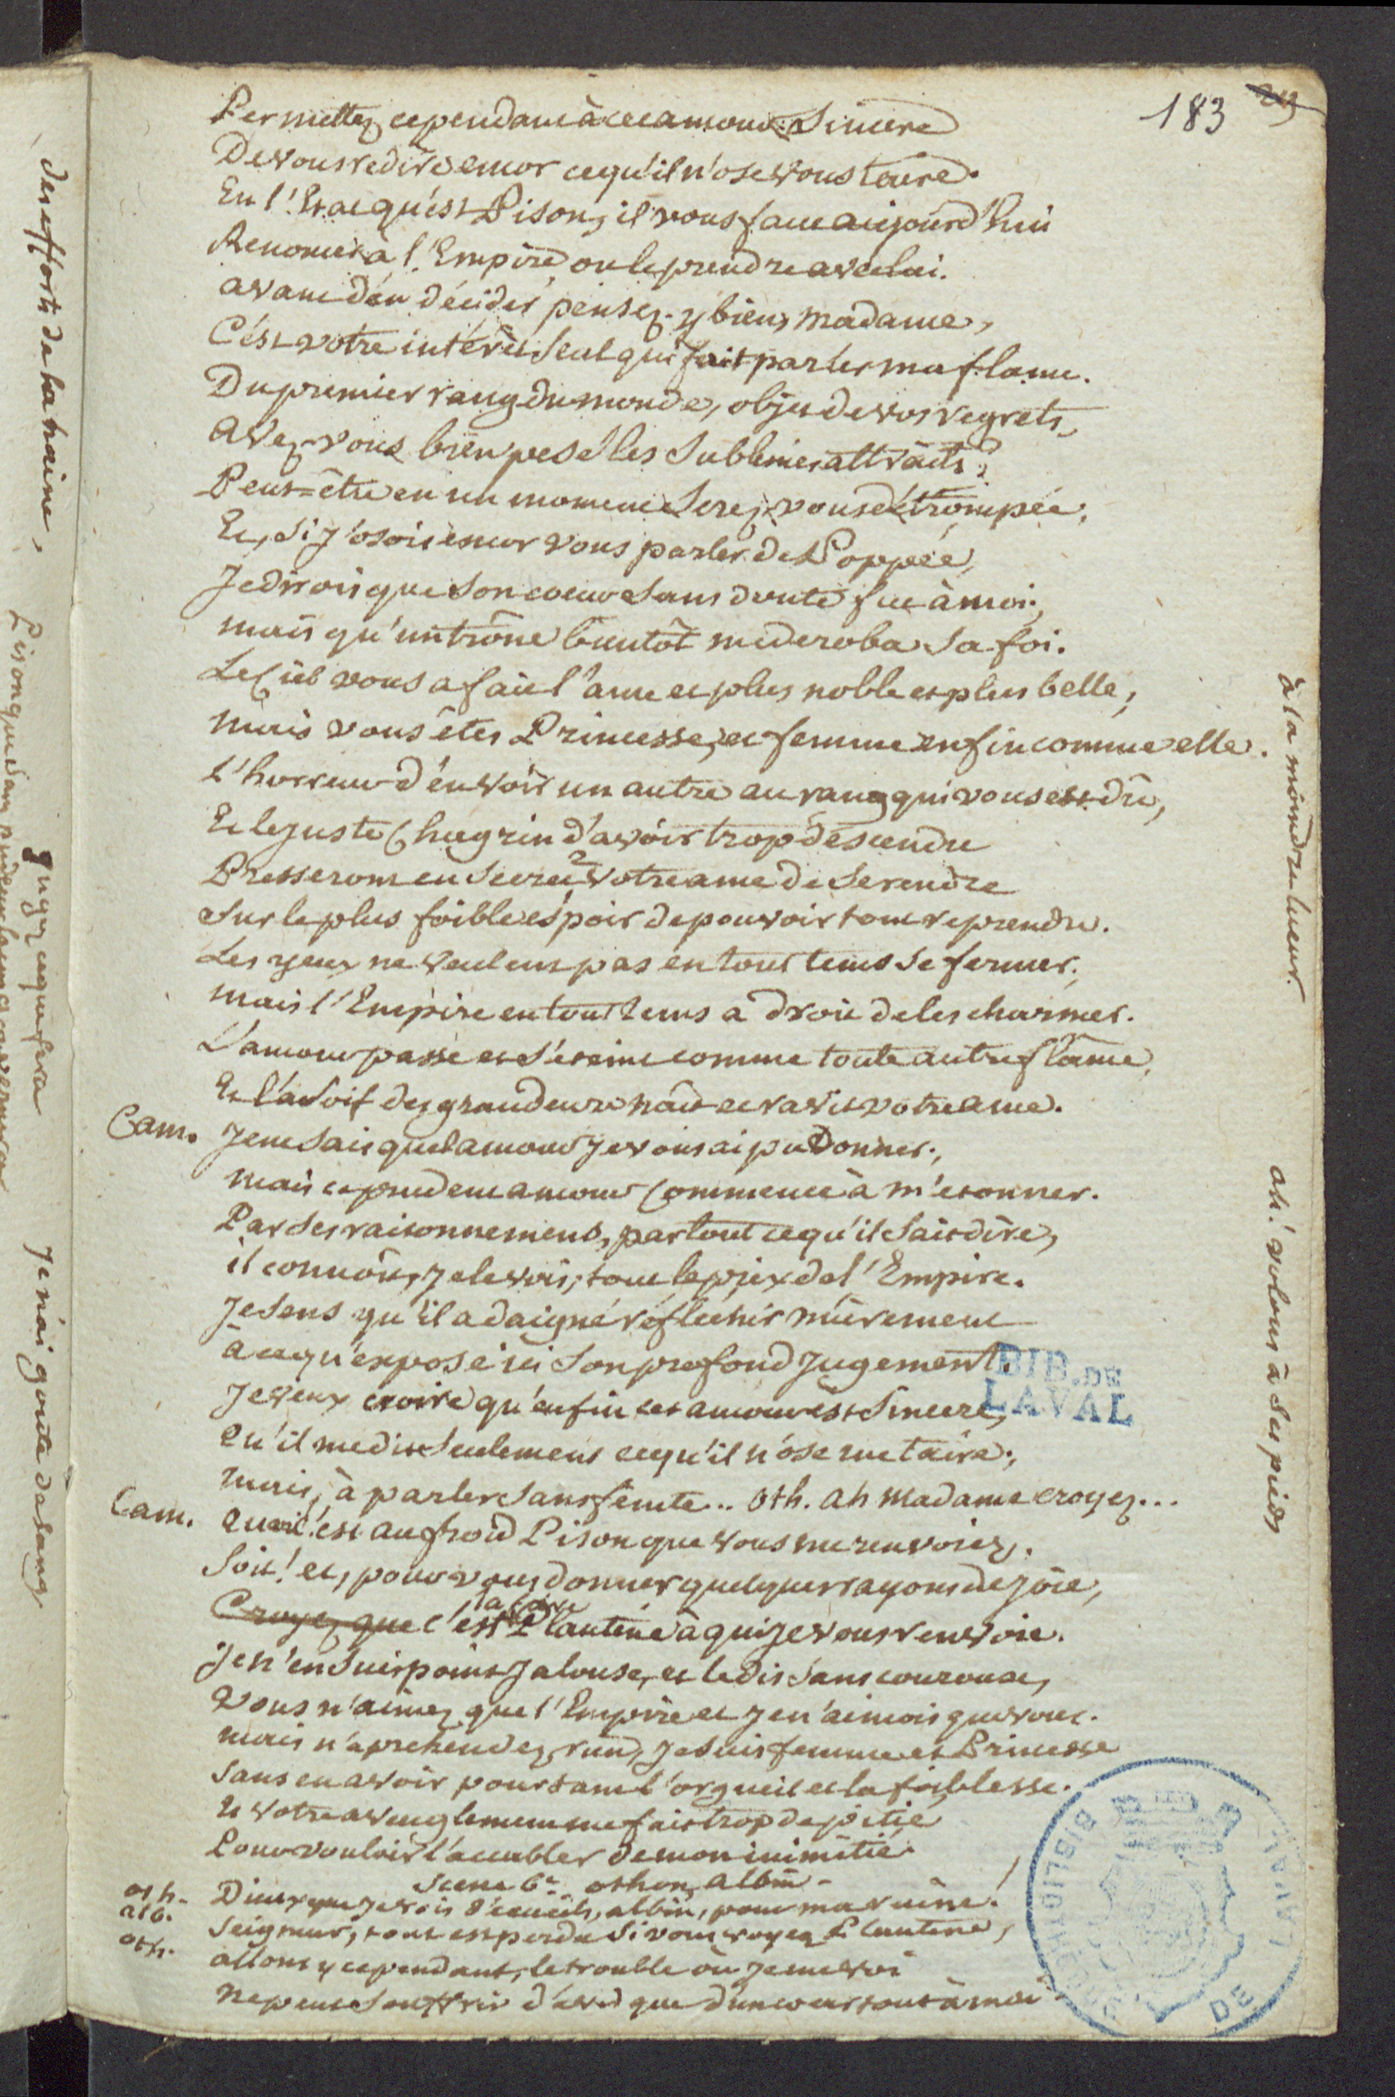 183
Permettez cependant à cet amour sincere
De vous redire encor ce qu'il n'ose vous taire.
En l'Etat qu'est Pison, il vous faut aujourd'hui
Renoncer à l'Empire ou le prendre avec lui.
avant d'en décider, pensez-y bien, madame,
C'est votre intérêt seul qui fait parler ma flame.
Du premier rang du monde, objet de vos regrets,
Avez-vous bien pesé les sublimes attraits?
Peut-être en un moment serez vous détrompée;
Et, si j'osois encor vous parler de Poppée,
Je dirois que son coeur sans doute fut à moi;
mais qu'un trône bientôt me deroba sa foi.
Le Ciel vous a fait l'ame et plus noble et plus belle;
Mais vous êtes Princesse, et femme enfin comme elle.
L'horreur d'en voir un autre au rang qui vous est dû,
Et le juste Chagrin d'avoir trop descendu
Presseront en secret votre ame de se rendre
Sur le plus foible espoir de pouvoir tout reprendre.
Les yeux ne veulent pas en tout tems se fermer;
mais l'Empire en tout tems a droit de les charmer.
L'amour passe et s'éteint comme toute autre flâme,
Et la soif des grandeurs naît et ravit votre ame.
Cam. Je ne sais quel amour je vous ai pu Donner;
mais ce prudent amour Commence à m'etonner.
Par ses raisonnemens, par tout ce qu'il sait dire,
il connoît, je le vois, tout le prix de l'Empire.
Je sens qu'il a daigné réflechir mûrement
à ce qu'expose ici son profond jugement.
Je veux croire qu'enfin cet amour est sincere,
Qu'il me dit seulement ce qu'il n'ose me taire;
Mais, à parler sans feinte.. Oth. Ah madame croyez...
Cam. Quoi! c'est au froid Pison que vous me renvoiez.
Soit! et, pour vous donner quelques rayons de joie,
Croyez que c'est à Plautine à qui je vous renvoie.
Je n'en suis point jalouse, et le dis sans couroux,
Vous n'aimez que l'Empire et je n'aimois que vous.
mais n'aprehendez rien, je suis femme et Princesse
Sans en avoir pourtant l'orgueil et la foiblesse.
Et votre aveuglement me fait trop de pitié
Pour vouloir l'accabler de mon inimitié.
Scene 6e othon, albin
oth. Dieux que je vois d'écueils, albin, pour ma ruine!
alb. Seigneur, tout est perdu si vous voyez Plautine,
oth. allons y cependant, le trouble où je me voi
Ne peut souffrir d'avis que d'un coeur tout à moi
à la moindre lueur.
ah! volons à ses pieds
des efforts de la haine,
Pison que
jugez ce que fera
je n'ai goute de sang
BIB. DE
LAVAL
BIBLIOTHEQUE DE LAVAL